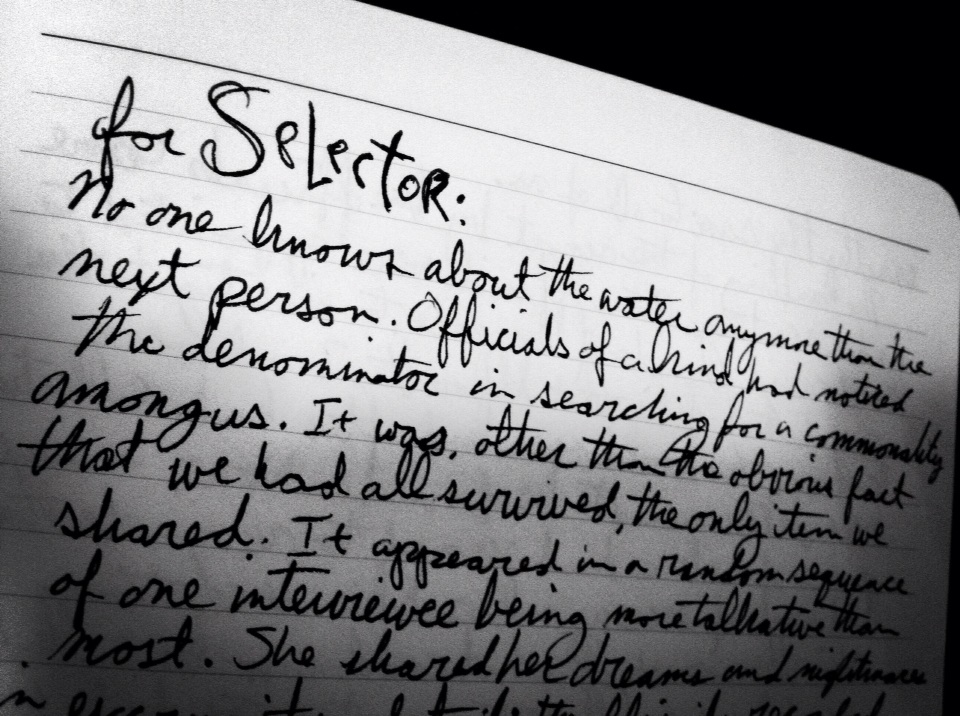 for Selector:
No one knows about the water anymore than the
next person. Officials of a kind had noticed
the denominator in searching for a commonality
among us. It was, other than the obvious fact
that we had all survived, the only item we
shared. It appeared in a random sequence
of one interviewee being more talkative than
most. She shared her dreams and nightmares